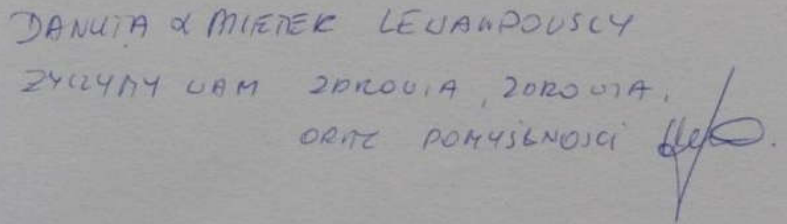 DANUTA & MIETEK LEWANDOWSCY
ŻYCZYMY WAM ZDROWIA, ZDROWIA,
ORAZ POMYŚLNOŚCI